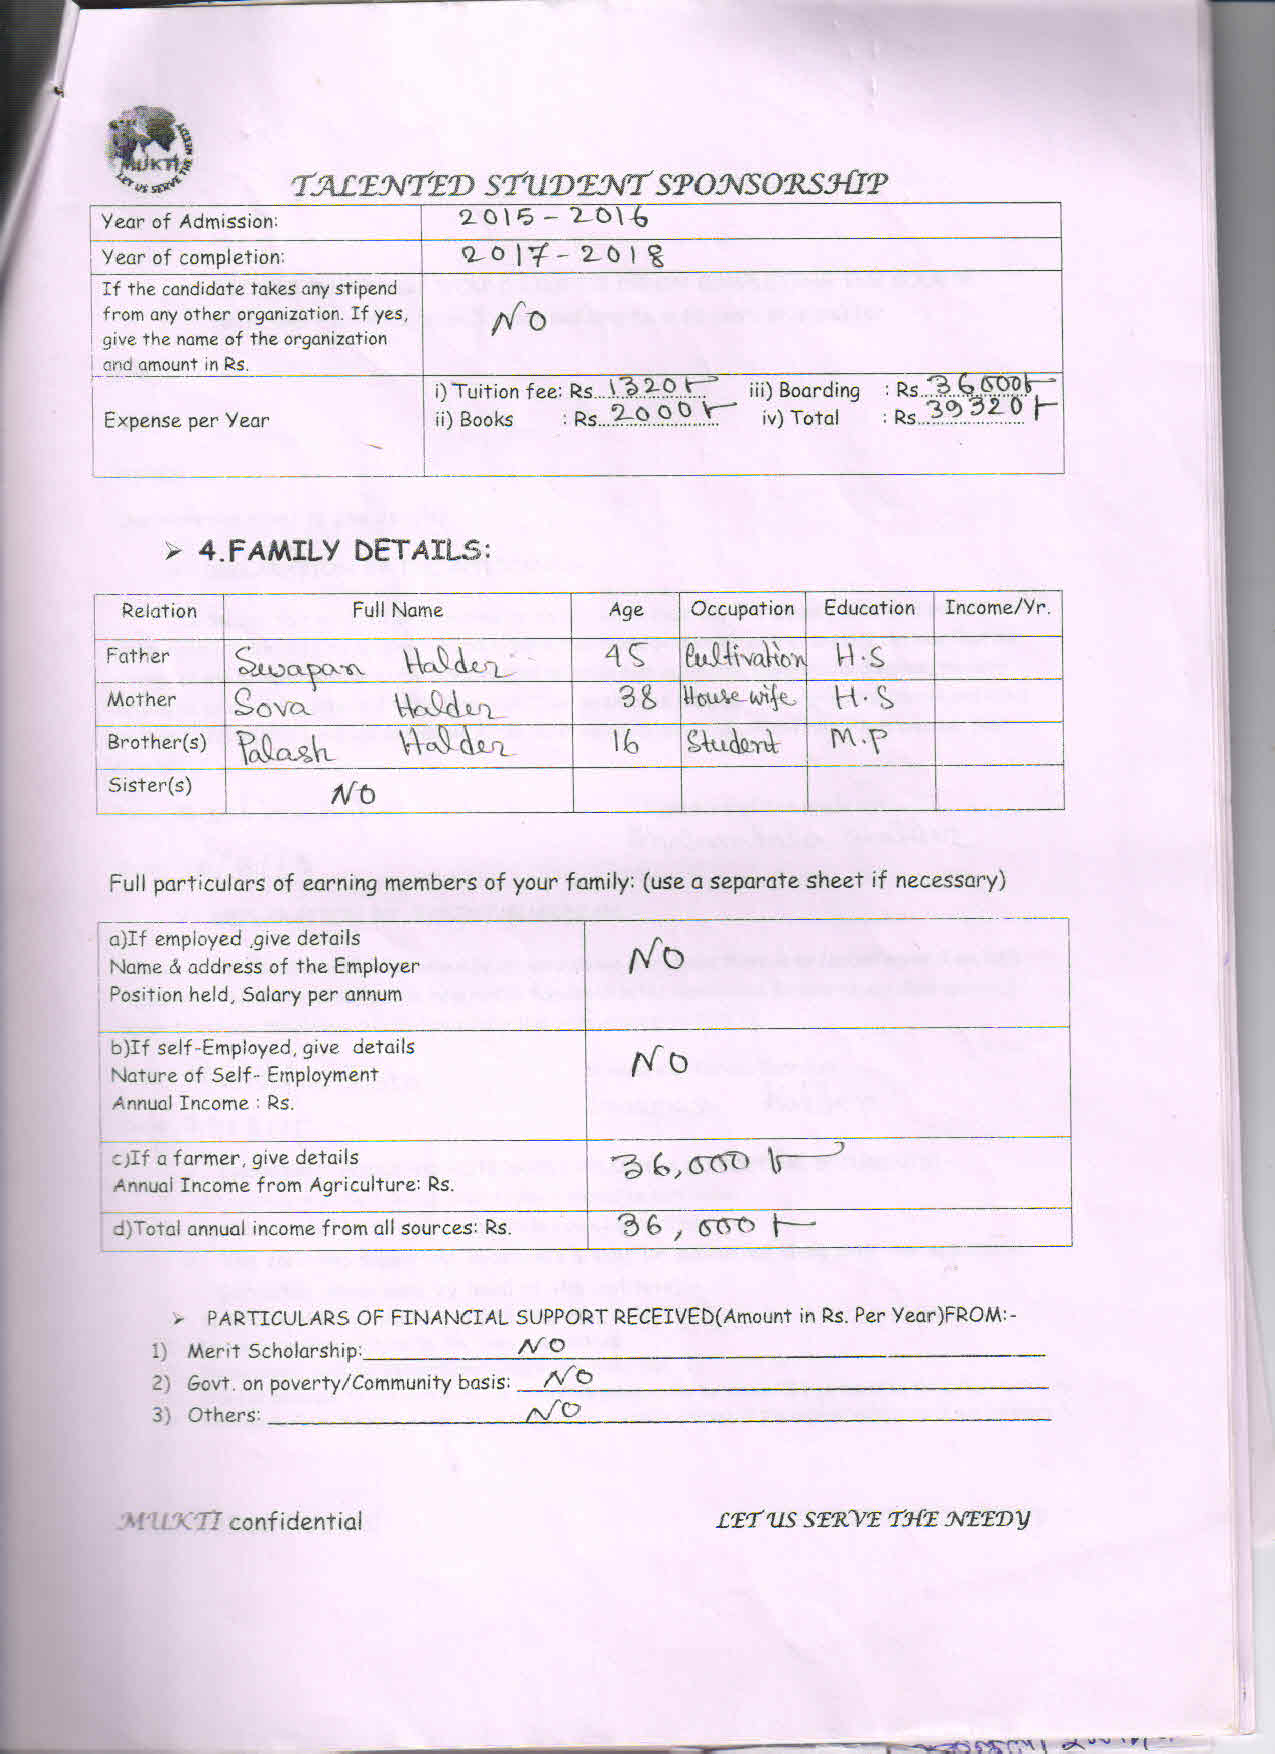 MUKTI
LET US SERVE THE NEEDY
TALENTED STUDENT SPONSORSHIP
Year of Admission: 2015 - 2016
Year of completion: 2017 - 2018
If the candidate takes any stipend
from any other organization. If yes,
give the name of the organization
and amount in Rs.
NO
Expense per Year
i) Tuition fee: Rs. 1320/- iii) Boarding : Rs. 36,000/-
ii) Books : Rs. 2000/- iv) Total : Rs. 39320/-
➢ 4.FAMILY DETAILS:
Relation Full Name Age Occupation Education Income/Yr.
Father Swapan Halder 45 Cultivation H.S
Mother Sova Halder 38 House wife H.S
Brother(s) Palash Halder 16 Student M.P
Sister(s) NO
Full particulars of earning members of your family: (use a separate sheet if necessary)
a)If employed ,give details
Name & address of the Employer
Position held, Salary per annum
NO
b)If self-Employed, give details
Nature of Self- Employment
Annual Income : Rs.
NO
c)If a farmer, give details
Annual Income from Agriculture: Rs.
36,000/-
d)Total annual income from all sources: Rs. 36,000/-
➢ PARTICULARS OF FINANCIAL SUPPORT RECEIVED(Amount in Rs. Per Year)FROM:-
1) Merit Scholarship: NO
2) Govt. on poverty/Community basis: NO
3) Others: NO
MUKTI confidential LET US SERVE THE NEEDY